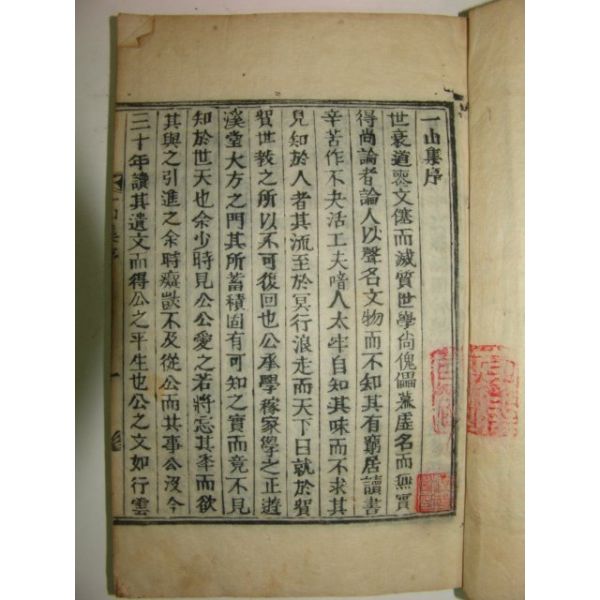 一山集序
世衰道喪文僿而滅質世學尙傀儡慕虛名而無實
得尙論者論人以聲名文物而不知其有窮居讀書
辛苦作不夬活工夫喑人太牢自知其味而不求其
見知於人者其流至於冥行浪走而天下日就於貿
貿世敎之所以不可復回也公承學稼家學之正遊
溪堂大方之門其所蓄積固有可知之實而竟不見
知於世天也余少時見公公愛之若將忘其年而欲
其與之引進之余時癡獃不及從公而共事公沒今
三十年讀其遺文而得公之平生也公之文如行雲
一山集序
一